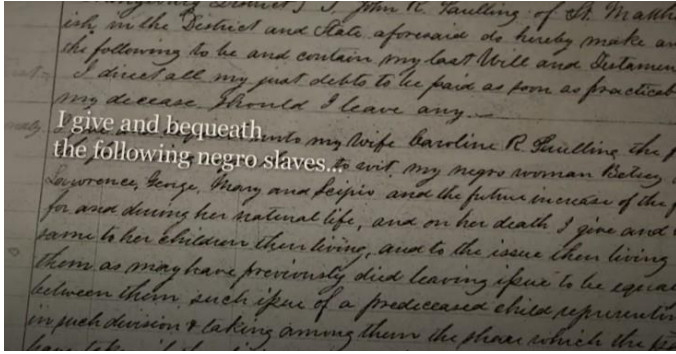 District I, John R. Faulling of St. Matth
ish, in the District and State aforesaid do hereby make an
the following to be and contain my last Will and Testamen
I direct all my just debts to be paid as soon as practicab
my decease should I leave any.
I give and bequeath
unto my wife Caroline R. Faulling the
the following negro slaves...
to wit, my negro woman Betsey
Lawrence, George, Mary and Scipio and the future increase of the
for and during her natural life, and on her death I give and
same to her children then living, and to the issue then living
them as may have previously died leaving issue to be equa
between them, such issue of a predeceased child representin
in such division & taking among them the share which the
have take